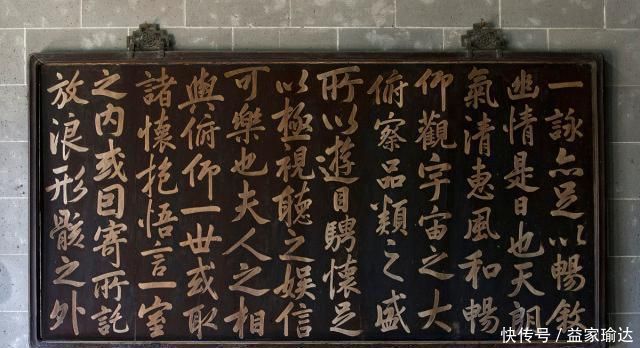 一詠亦足以暢敘
幽情是日也天朗
氣清惠風和暢
仰觀宇宙之大
俯察品類之盛
所以遊目騁懷足
以極視聽之娛信
可樂也夫人之相
與俯仰一世或取
諸懷抱悟言一室
之內或因寄所託
放浪形骸之外
快传号 / 益家瑜达